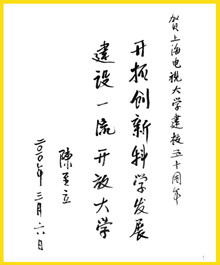 贺上海电视大学建校五十周年
开拓创新科学发展
建设一流开放大学
陳至立
二〇一〇年三月六日